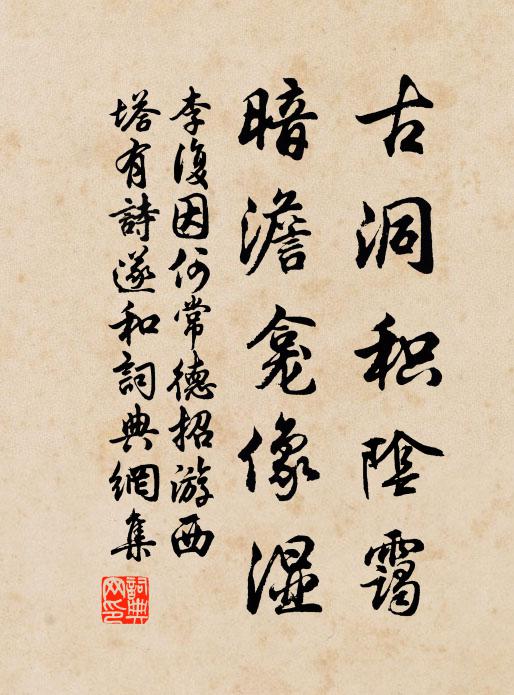 古洞积陰靄
暗澹龛像湿
李復因何常德招游西
塔有詩遂和詞典網集
詞典网印